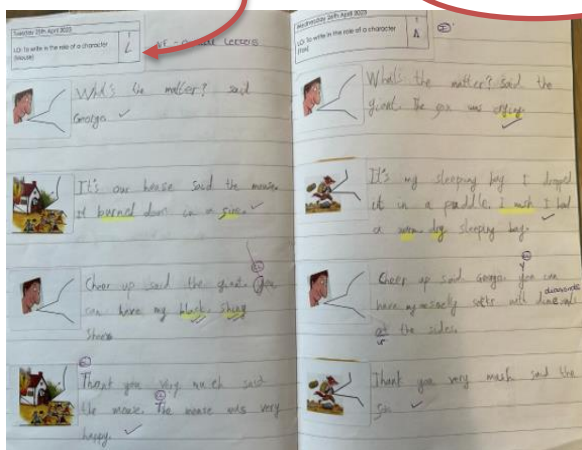 Tuesday 25th April 2023
LO: To write in the role of a character
(Mouse)
letters
What's the matter? said
George
It's our house said the mouse.
It burned down in a
Cheer up said the You
can have my black shiny
shoes
Thank you very much said
the mouse. The mouse was very
happy.
Wednesday 26th April 2023
LO: To write in the role of a character
(Fox)
What's the matter? said the
giant. The fox was crying.
It's my sleeping bag I dropped
it in a puddle. I wish I had
a dry sleeping bag.
Cheer up said George. you can
diamonds
have my socks with
at the sides.
Thank you very mush said the